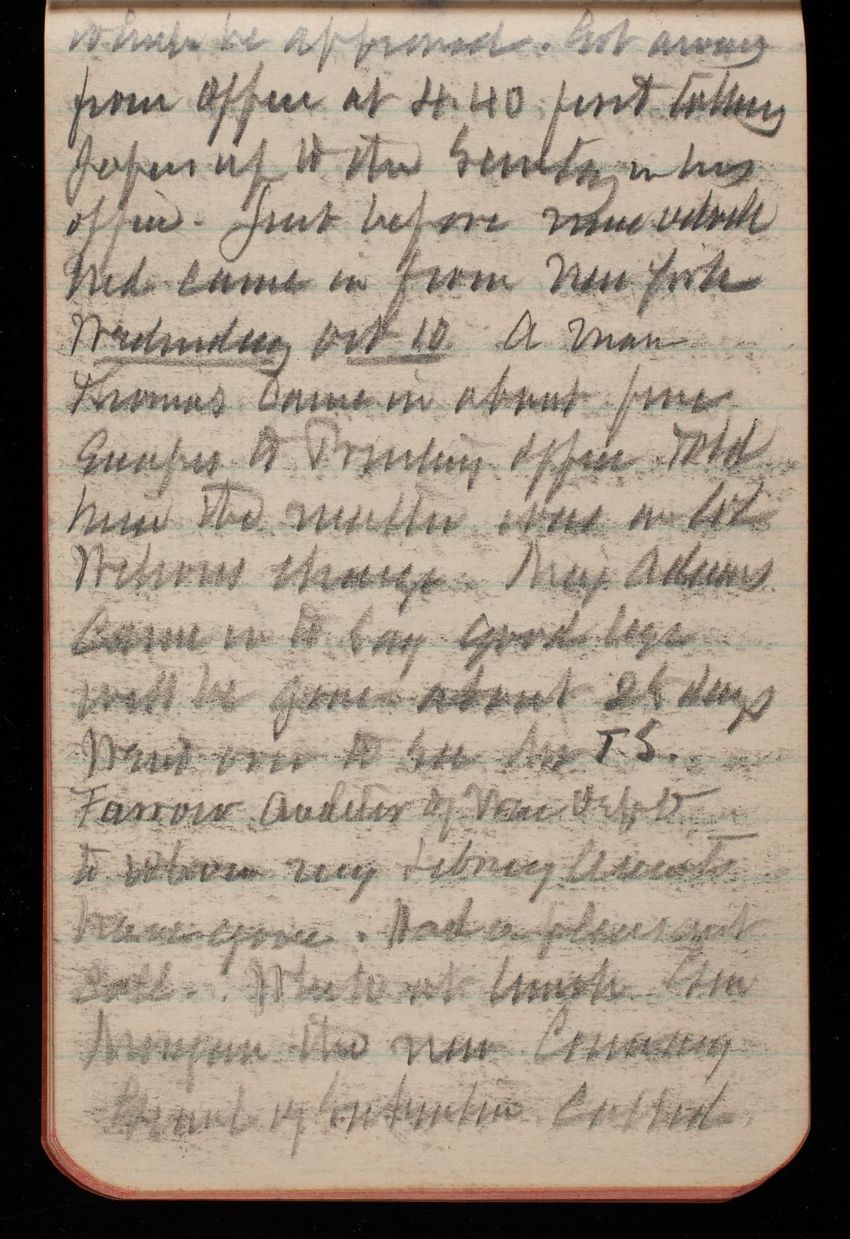 which be approved. Got away
from office at 4.40 first taking
papers up to the Secretary in his
office. Just before nine oclock
Ned came in from New York
Wednesday Oct 10 A man
Thomas came in about five
to Printing office. Told
him the matter was in Col
Wilsons charge. Maj Adams
Came in to say good bye
will be gone about 25 days
Went over to see Mr T.S.
Farrow Auditor of War Dept
to whom my Library accounts
have gone. Had a pleasant
call. at lunch. Gen
Morgan the new Commissary
General of Subsistence Called